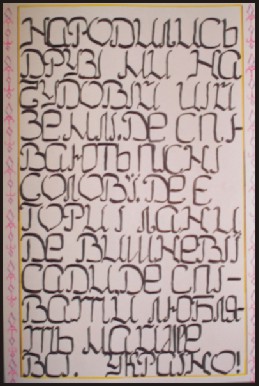 НАРОДИЛИСЬ
ДРУЗІ МИ НА
ЧУДОВІЙ ЦІЙ
ЗЕМЛІ.ДЕ СПІ-
ВАЮТЬ ПІСНІ
СОЛОВ'Ї.ДЕ Є
ГОРИ І ЛАНИ
ДЕ ВИШНЕВІ
САДИ.ДЕ СПІ-
ВАТИ ЛЮБЛЯ-
ТЬ
ВА. УКРАЇНО!